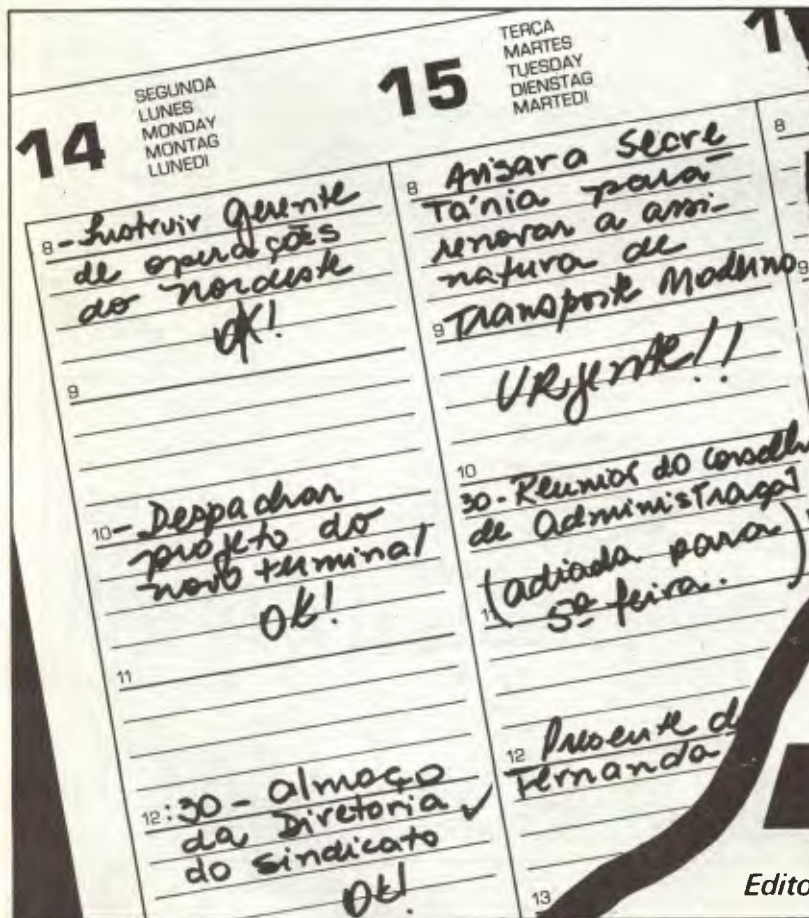 14
SEGUNDA
LUNES
MONDAY
MONTAG
LUNEDI
8 - Instruir Gerente
de operações
do nordeste
OK!
9
10 - Despachar
projeto do
novo terminal
OK!
11
12:30 - almoço
da Diretoria ✓
do Sindicato
OK!
15
TERÇA
MARTES
TUESDAY
DIENSTAG
MARTEDI
8 Avisar a Secre
Tânia para
renovar a assi-
natura de
9 Transporte Moderno
URgente!!
10
30 - Reunião do Conselh
de Administração
(adiada para
11 5ª feira..)
12 Presente d
Fernanda
13
8
9
Edito